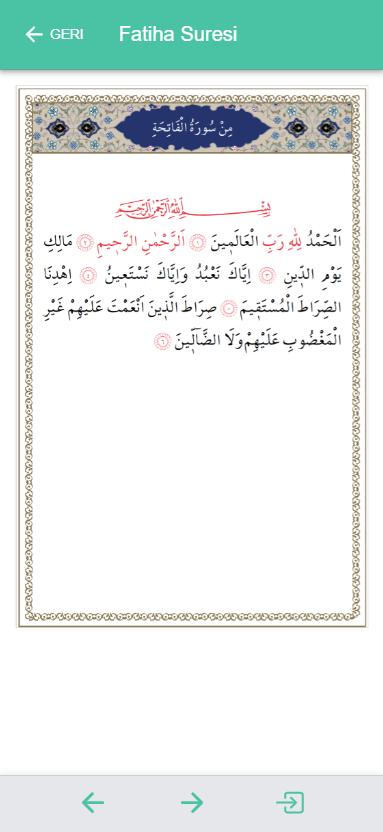 GERI
Fatiha Suresi
مِنْ سُورَةُ الْفَاتِحَةِ
بِسْمِ اللّٰهِ الرَّحْمٰنِ الرَّحِيمِ
اَلْحَمْدُ لِلّٰهِ رَبِّ الْعَالَمٖينَ ١ اَلرَّحْمٰنِ الرَّحٖيمِ ٢ مَالِكِ
يَوْمِ الدّٖينِ ٣ اِيَّاكَ نَعْبُدُ وَاِيَّاكَ نَسْتَعٖينُ ٤ اِهْدِنَا
الصِّرَاطَ الْمُسْتَقٖيمَ ٥ صِرَاطَ الَّذٖينَ اَنْعَمْتَ عَلَيْهِمْ غَيْرِ
الْمَغْضُوبِ عَلَيْهِمْ وَلَا الضَّٓالّٖينَ ٦